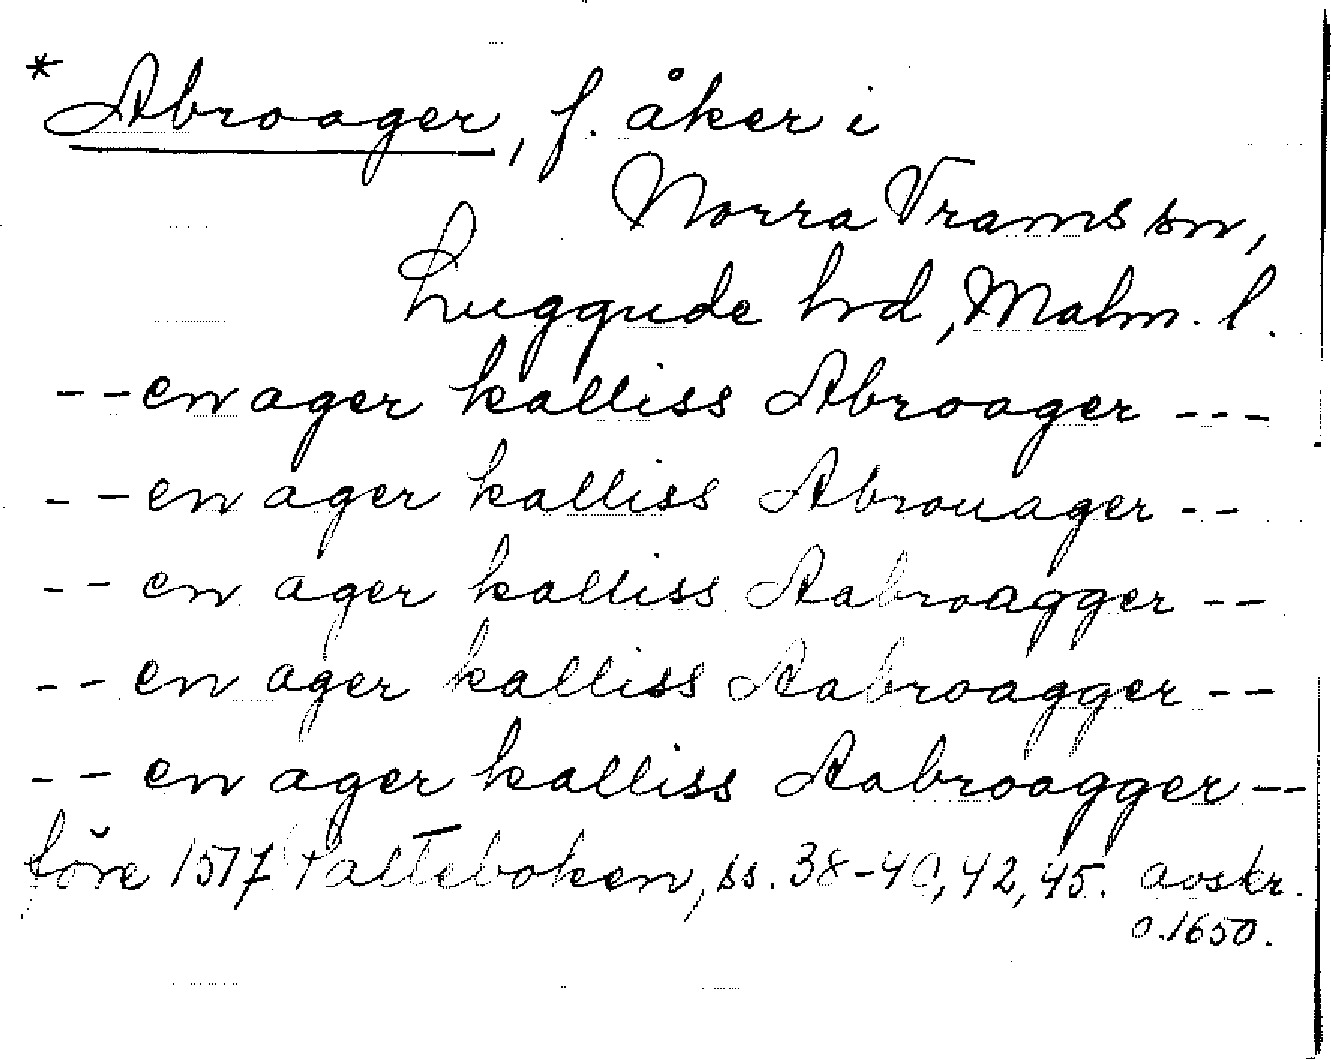 *Abroager, f. åker i
Norra Vrams sn,
Luggude hrd, Malm. l.
--en ager kalliss Abroager ---
--en ager kalliss Abrouager --
--en ager kalliss Aabroagger --
--en ager kalliss Aabroagger --
--en ager kalliss Aabroagger --
före 1517 Palteboken, ss. 38-40, 42, 45. avskr.
o. 1650.